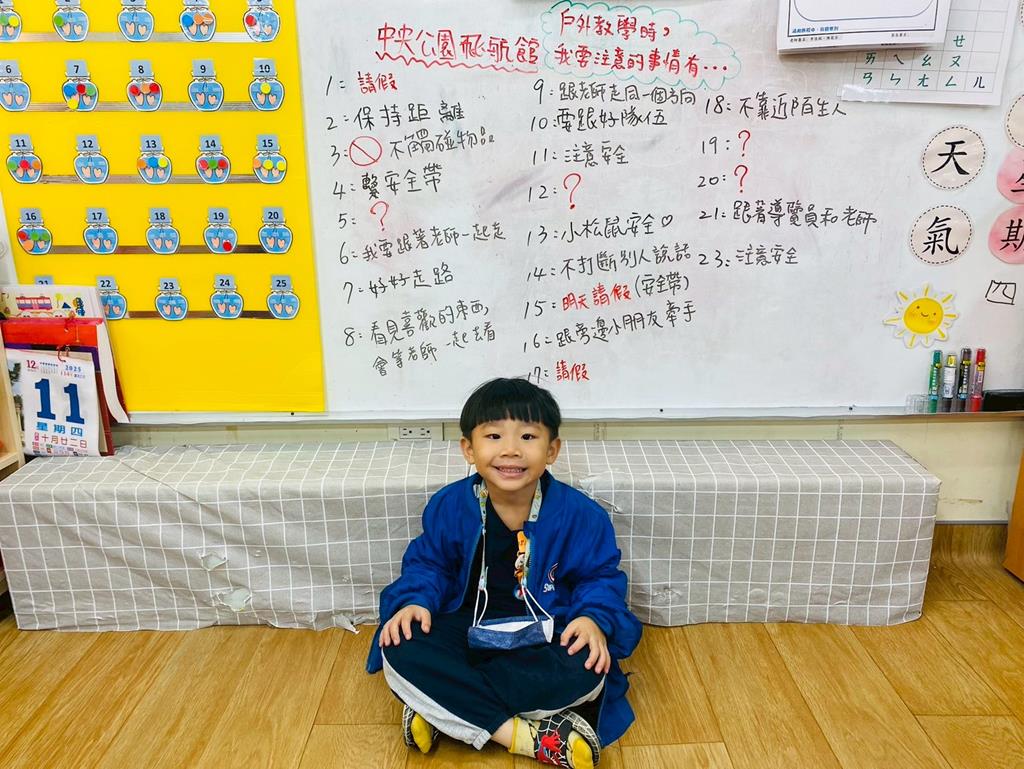 中央公園飛航館
戶外教學時，
我要注意的事情有...
1：請假
2：保持距離
3：不觸碰物品
4：繫安全帶
5：？
6：我要跟著老師一起走
7：好好走路
8：看見喜歡的東西，
會等老師一起去看
9：跟老師走同一個方向
10：要跟好隊伍
11：注意安全
12：？
13：小松鼠安全♡
14：不打斷別人說話
15：明天請假(安全帶)
16：跟旁邊小朋友牽手
17：請假
18：不靠近陌生人
19：？
20：？
21：跟著導覽員和老師
23：注意安全
6 7 8 9 10
11 12 13 14 15
16 17 18 19 20
21 22 23 24 25
12 2025
11
星期四
十月廿二日
ㄝ
ㄞ ㄟ ㄠ ㄡ
ㄢ ㄣ ㄤ ㄥ ㄦ
天
氣
期
四